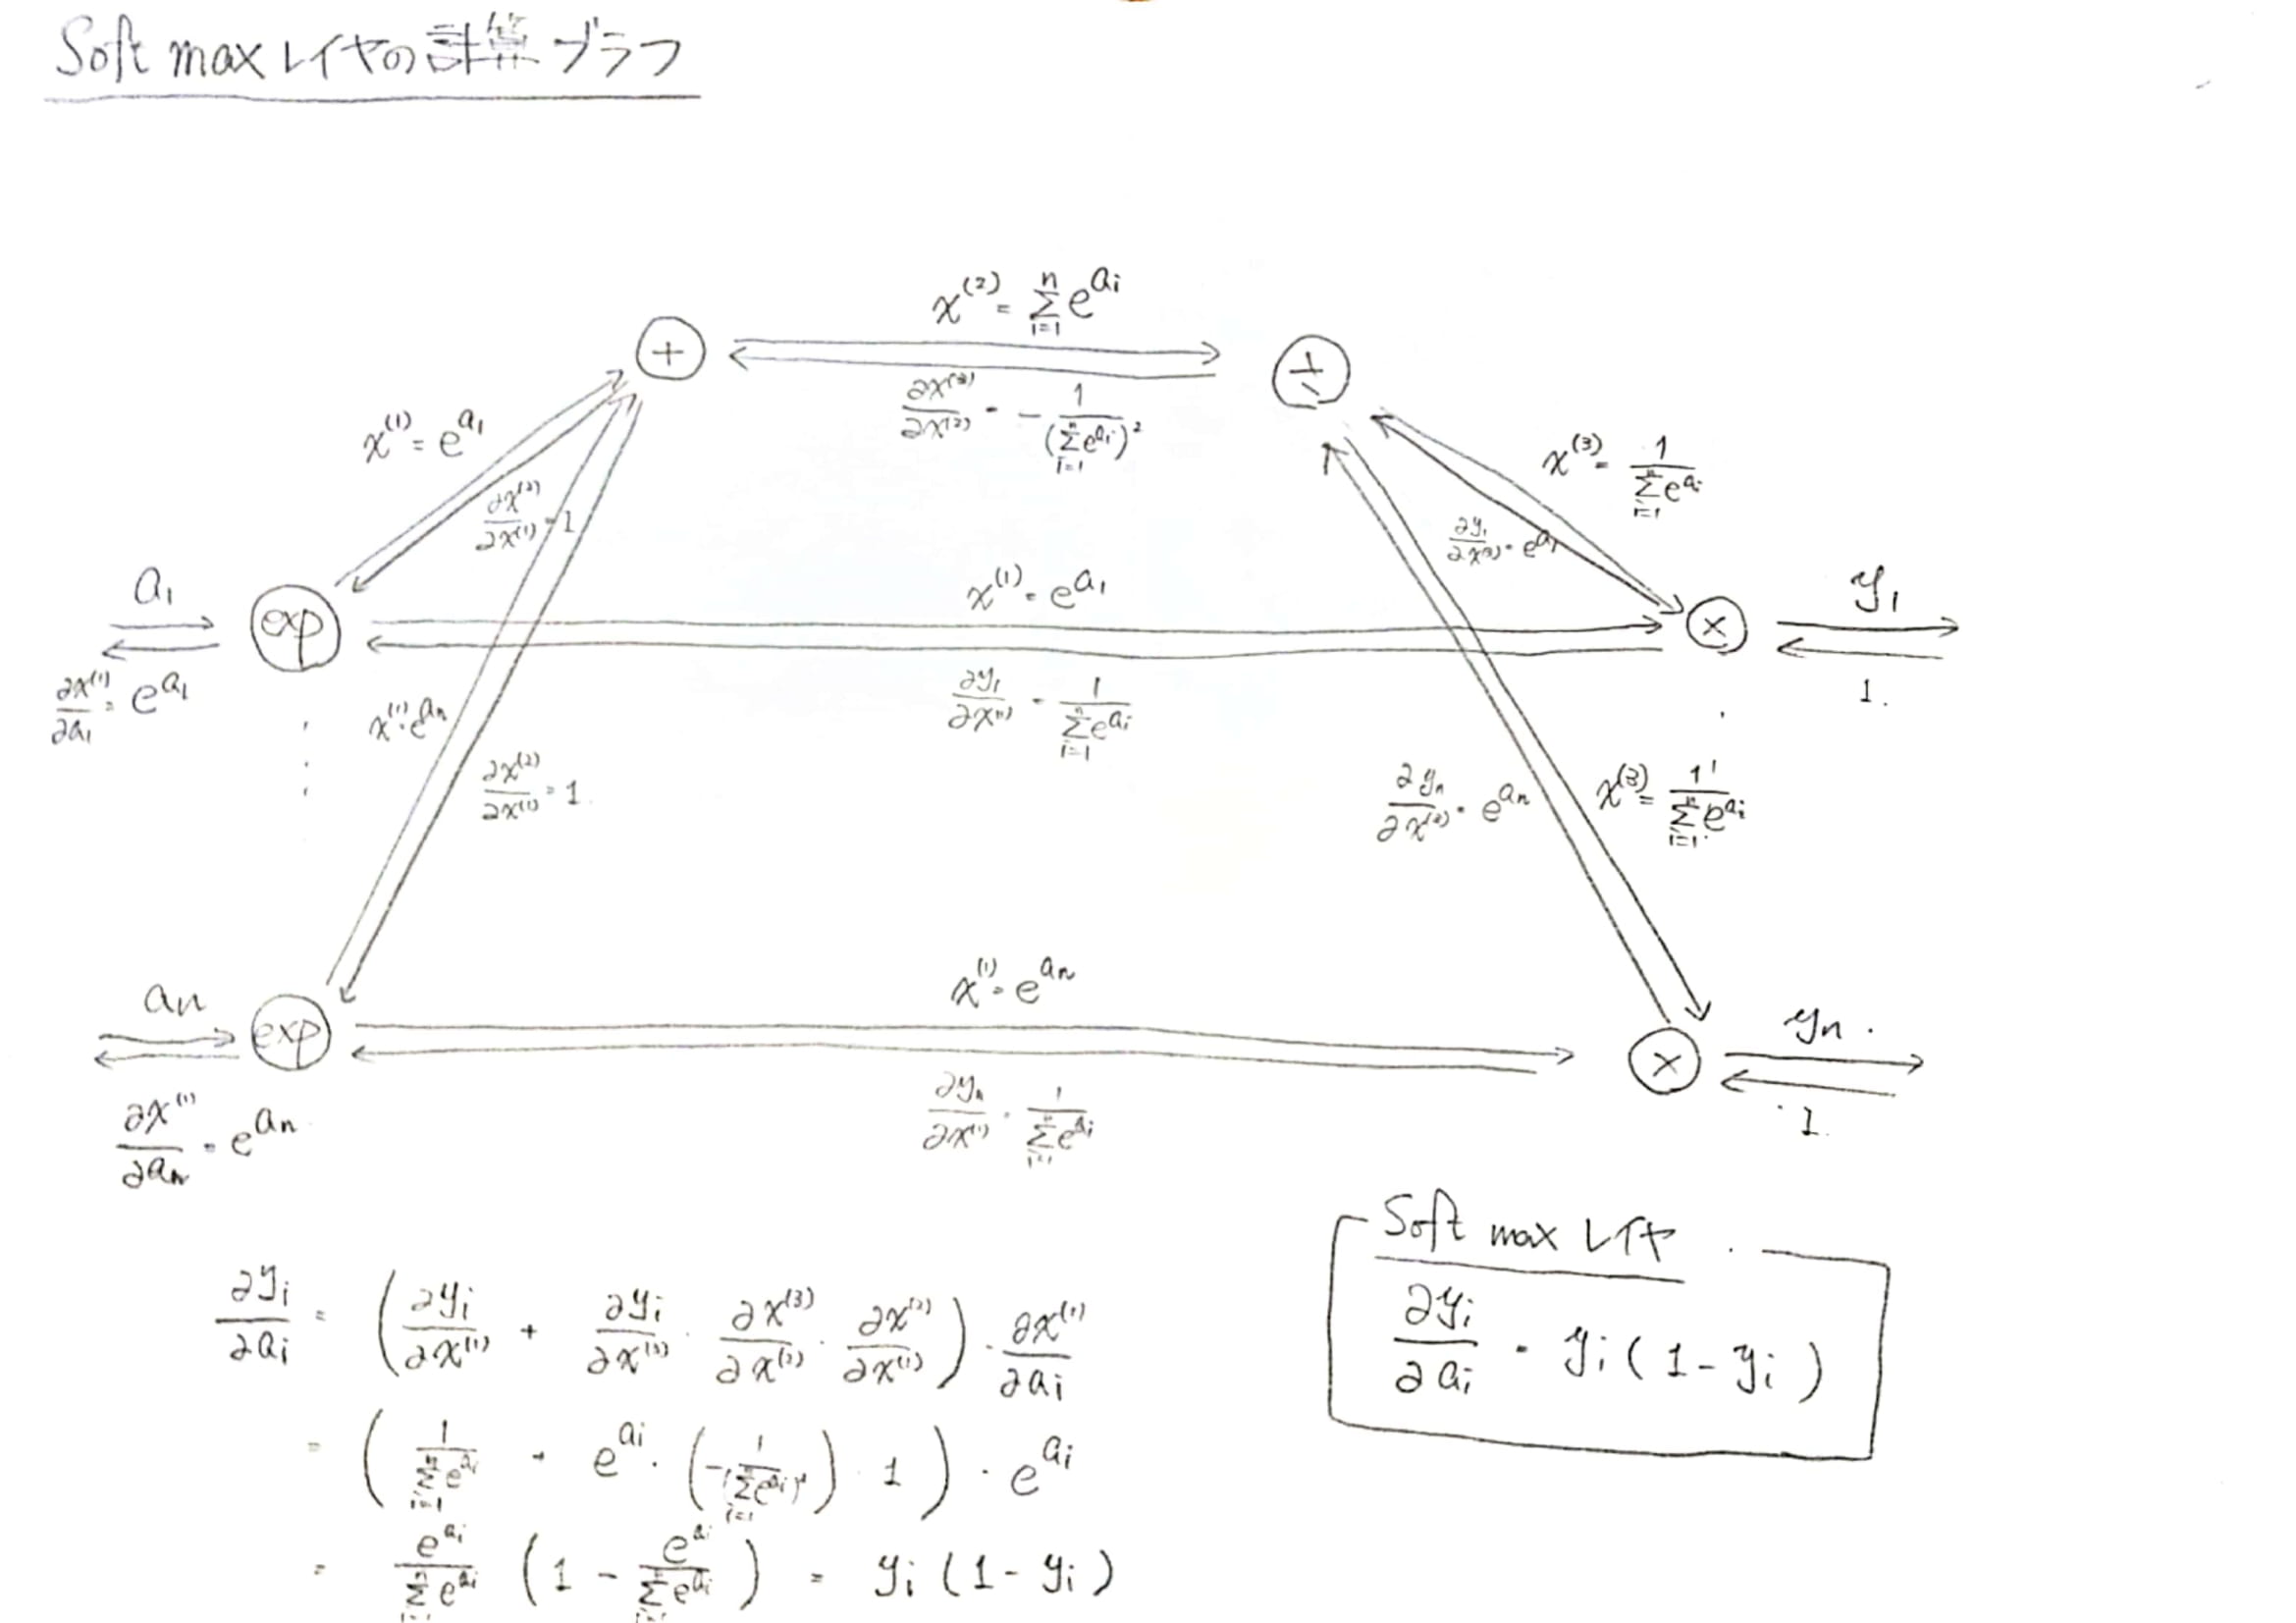 Soft max レイヤの計算グラフ
x^(2) = Σ_{i=1}^{n} e^{a_i}
+
÷
∂x^(3)/∂x^(2) = - 1/(Σ_{i=1}^{n} e^{a_i})^2
x^(1) = e^{a_1}
x^(3) = 1/Σ_{i=1}^{n} e^{a_i}
∂x^(2)/∂x^(1) = 1
∂y_1/∂x^(3) = e^{a_1}
a_1
exp
x^(1) = e^{a_1}
×
y_1
∂x^(1)/∂a_1 = e^{a_1}
∂y_1/∂x^(1) = 1/Σ_{i=1}^{n} e^{a_i}
1.
x^(1) = e^{a_n}
∂x^(2)/∂x^(1) = 1.
∂y_n/∂x^(3) = e^{a_n}
x^(3) = 1/Σ_{i=1}^{n} e^{a_i}
a_n
exp
x^(1) = e^{a_n}
×
y_n.
∂x^(1)/∂a_n = e^{a_n}
∂y_n/∂x^(1) = 1/Σ_{i=1}^{n} e^{a_i}
1.
∂y_i/∂a_i = (∂y_i/∂x^(1) + ∂y_i/∂x^(3) · ∂x^(3)/∂x^(2) · ∂x^(2)/∂x^(1)) · ∂x^(1)/∂a_i
= (1/Σ_{i=1}^{n} e^{a_i} + e^{a_i} · (-1/(Σ_{i=1}^{n} e^{a_i})^2) · 1) · e^{a_i}
= e^{a_i}/Σ_{i=1}^{n} e^{a_i} (1 - e^{a_i}/Σ_{i=1}^{n} e^{a_i}) = y_i (1 - y_i)
Soft max レイヤ
∂y_i/∂a_i = y_i (1 - y_i)